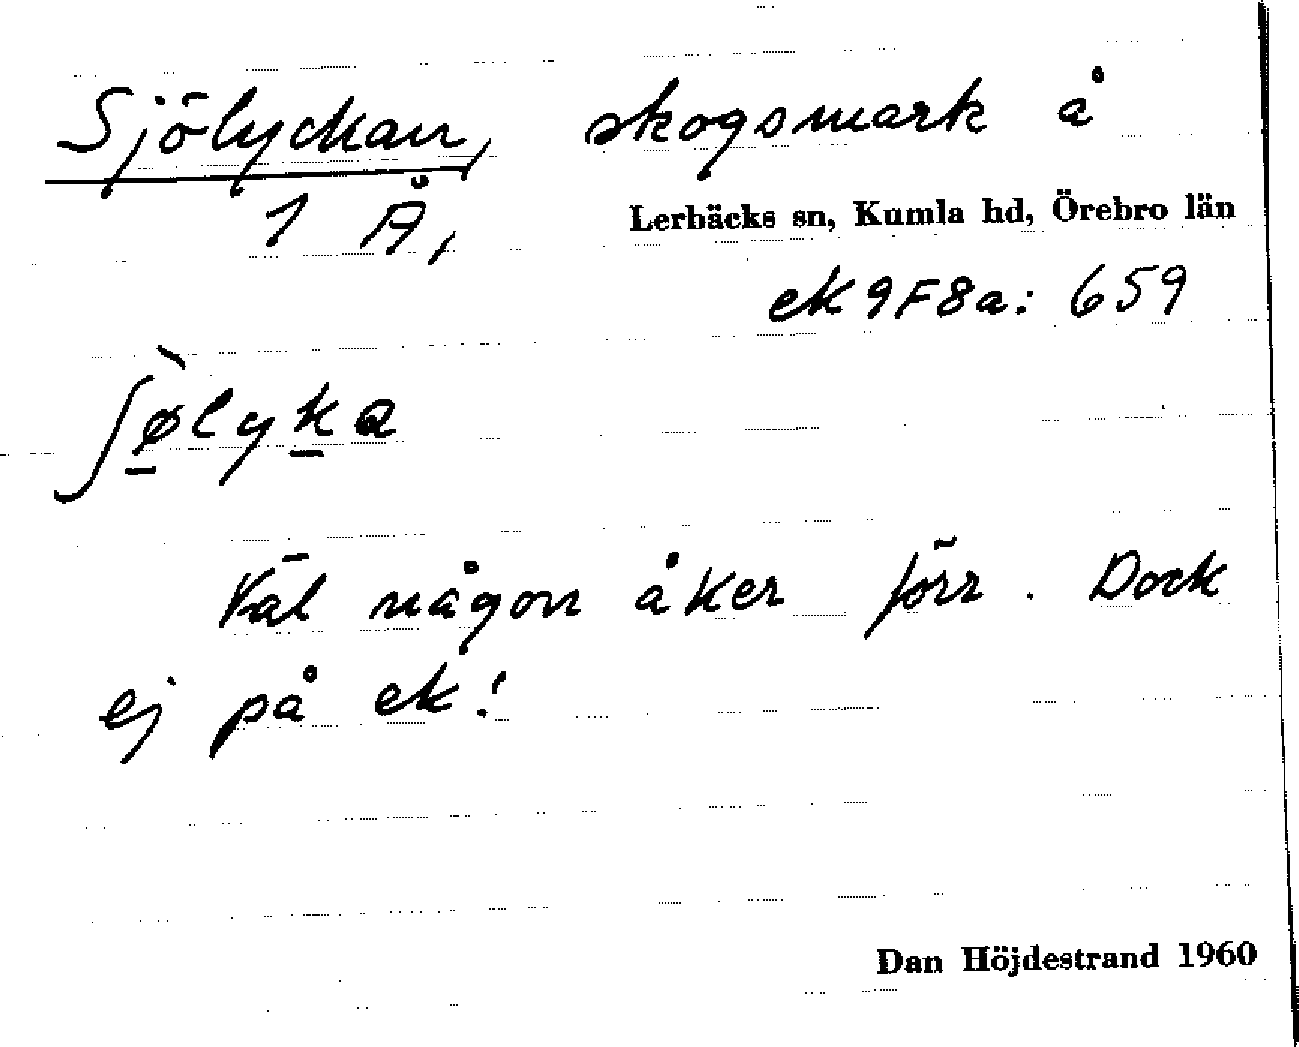 Sjölyckan, skogsmark å
1 Å,
Lerbäcks sn, Kumla hd, Örebro län
ek 9F8a: 659
ʃø̀lyka
Väl någon åker förr. Dock
ej på ek!
Dan Höjdestrand 1960